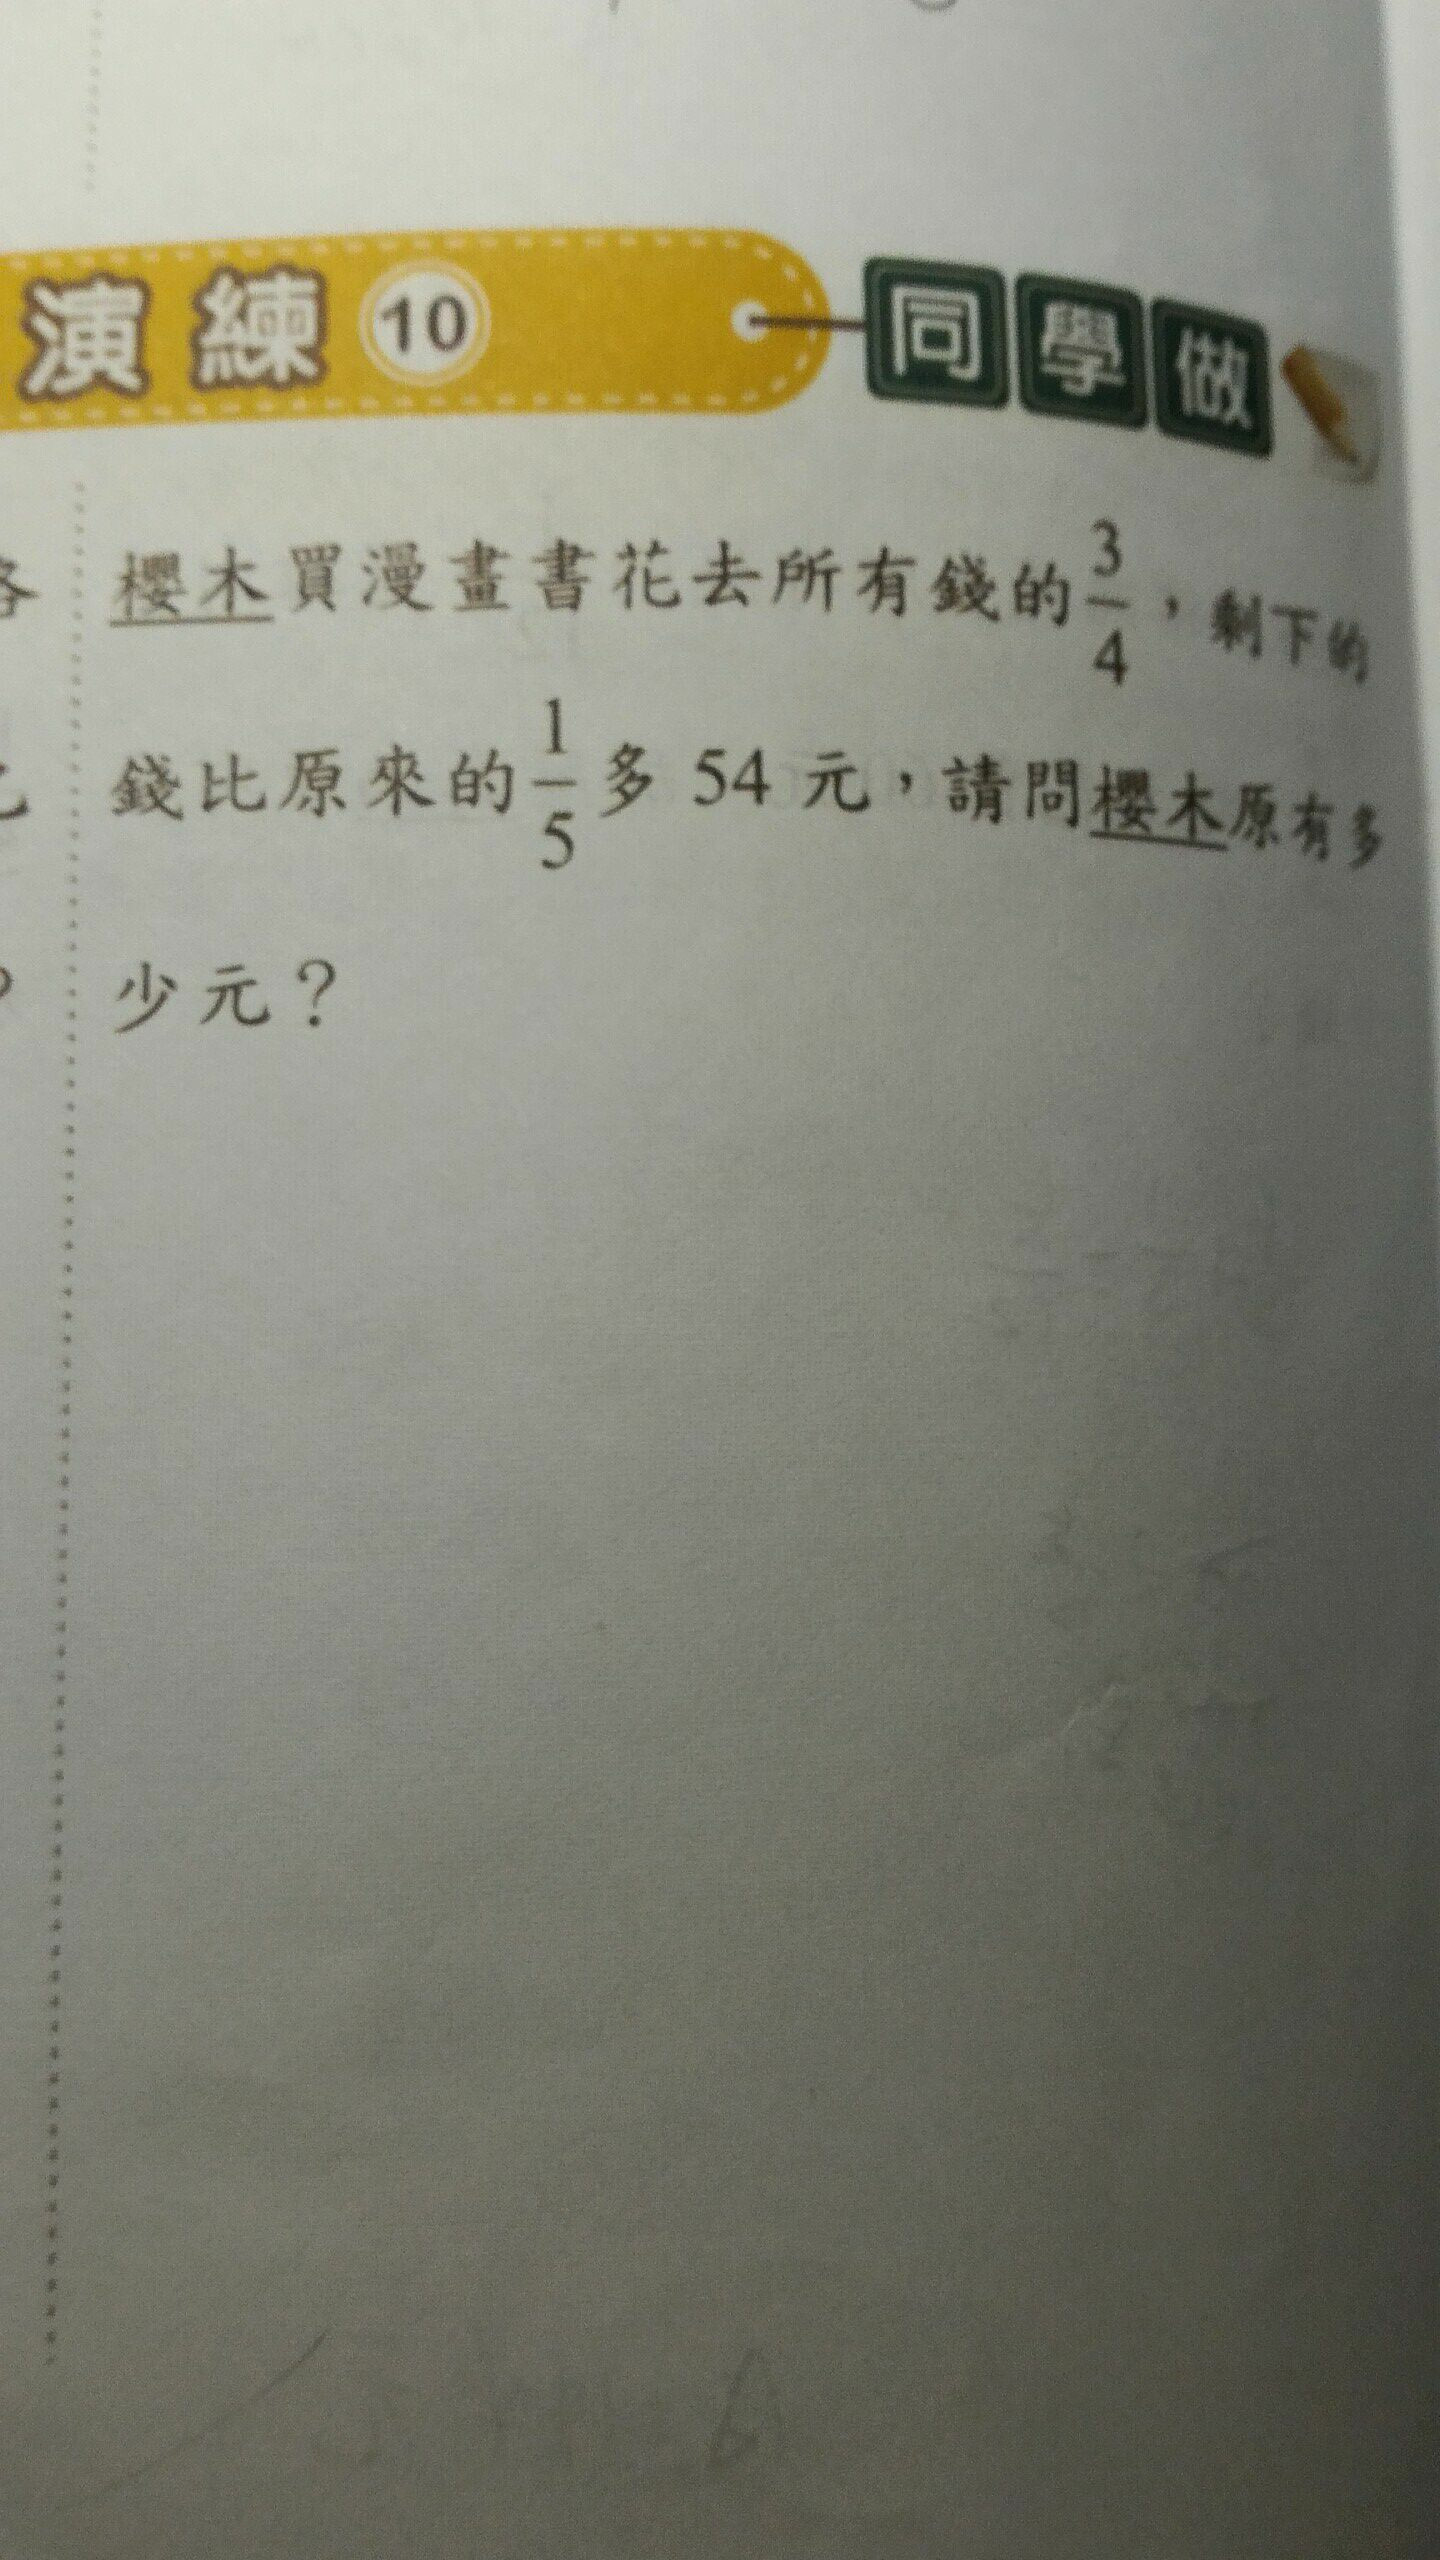 演練 10 同學做
櫻木買漫畫書花去所有錢的3/4，剩下的
錢比原來的1/5多 54 元，請問櫻木原有多
少元？